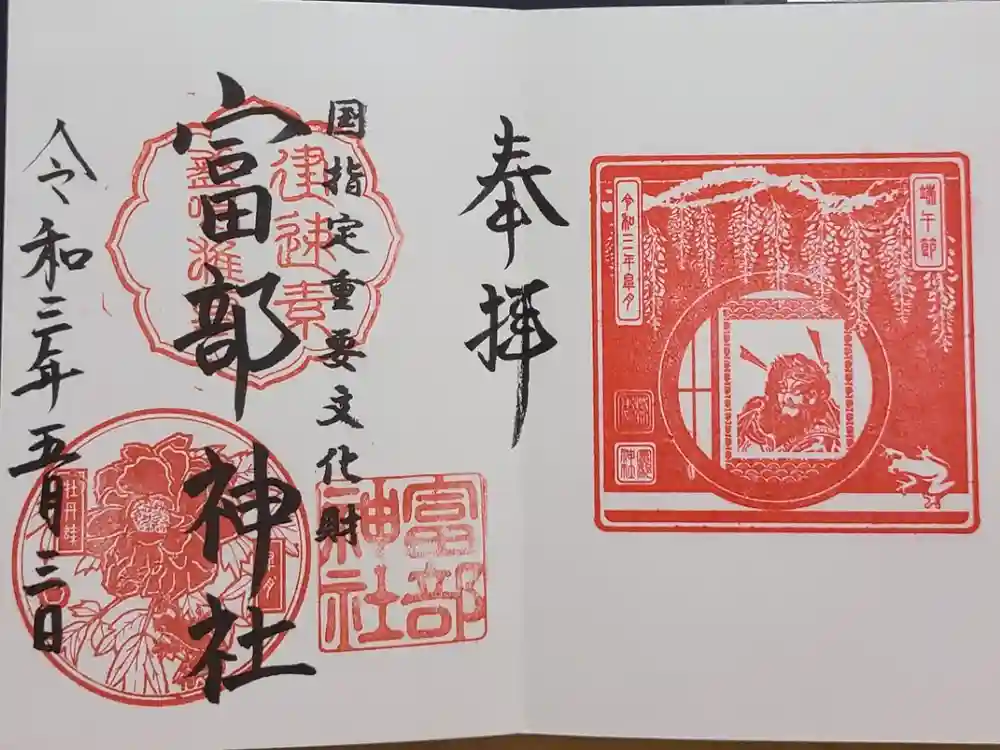 端午節
令和三年皐月
奉拝
国指定重要文化財
富部神社
建速素
富部
神社
牡丹
令和三年五月三日